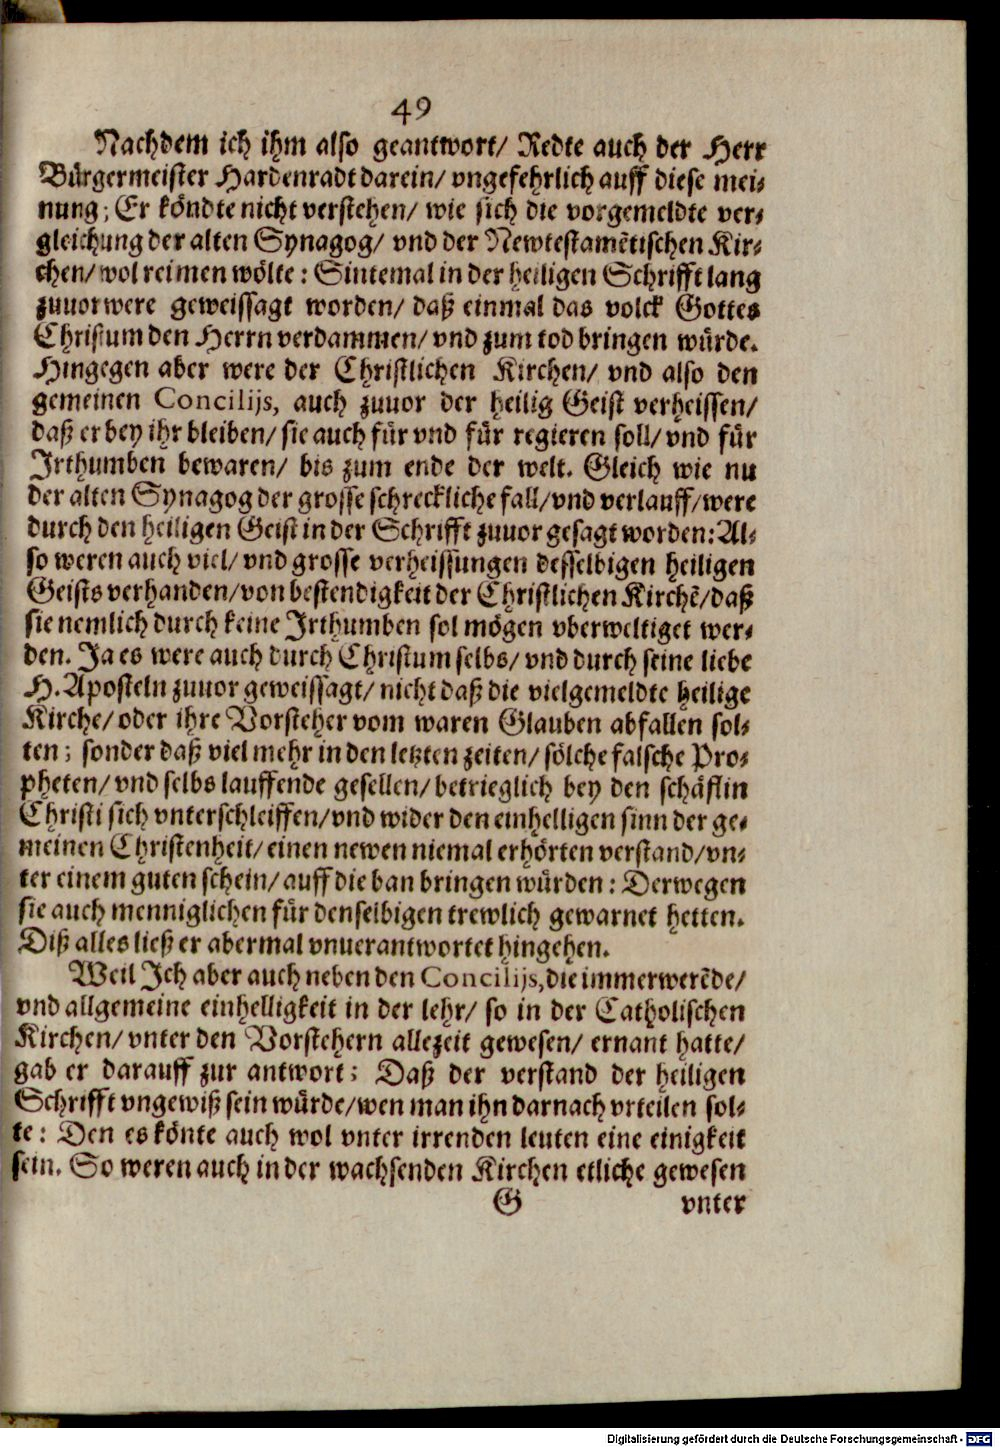 49
Nachdem ich ihm also geantwort/ Redte auch der Herr
Bürgermeister Hardenradt darein/ vngefehrlich auff diese mei-
nung; Er köndte nicht verstehen/ wie sich die vorgemeldte ver-
gleichung der alten Synagog/ vnd der Newtestamẽtischen Kir-
chen/ wol reimen wölte: Sintemal in der heiligen Schrifft lang
zuuor were geweissagt worden/ daß einmal das volck Gottes
Christum den Herrn verdammen/ vnd zum tod bringen würde.
Hingegen aber were der Christlichen Kirchen/ vnd also den
gemeinen Concilijs, auch zuuor der heilig Geist verheissen/
daß er bey ihr bleiben/ sie auch für vnd für regieren soll/ vnd für
Irthumben bewaren/ bis zum ende der welt. Gleich wie nu
der alten Synagog der grosse schreckliche fall/ vnd verlauff/ were
durch den heiligen Geist in der Schrifft zuuor gesagt worden: Al-
so weren auch viel/ vnd grosse verheissungen desselbigen heiligen
Geists verhanden/ von bestendigkeit der Christlichen Kirchẽ/ daß
sie nemlich durch keine Irthumben sol mögen vberweltiget wer-
den. Ja es were auch durch Christum selbs/ vnd durch seine liebe
H. Aposteln zuuor geweissagt/ nicht daß die vielgemeldte heilige
Kirche/ oder ihre Vorsteher vom waren Glauben abfallen sol-
ten; sonder daß viel mehr in den letzten zeiten/ sölche falsche Pro-
pheten/ vnd selbs lauffende gesellen/ betrieglich bey den schäflin
Christi sich vnterschleiffen/ vnd wider den einhelligen sinn der ge-
meinen Christenheit/ einen newen niemal erhörten verstand/ vn-
ter einem guten schein/ auff die ban bringen würden: Derwegen
sie auch menniglichen für denselbigen trewlich gewarnet hetten.
Diß alles ließ er abermal vnuerantwortet hingehen.
Weil Ich aber auch neben den Concilijs, die immerwerẽde/
vnd allgemeine einhelligkeit in der lehr/ so in der Catholischen
Kirchen/ vnter den Vorstehern allezeit gewesen/ ernant hatte/
gab er darauff zur antwort; Daß der verstand der heiligen
Schrifft vngewiß sein würde/ wen man ihn darnach vrteilen sol-
te: Den es könte auch wol vnter irrenden leuten eine einigkeit
sein. So weren auch in der wachsenden Kirchen etliche gewesen
G vnter
Digitalisierung gefördert durch die Deutsche Forschungsgemeinschaft - DFG